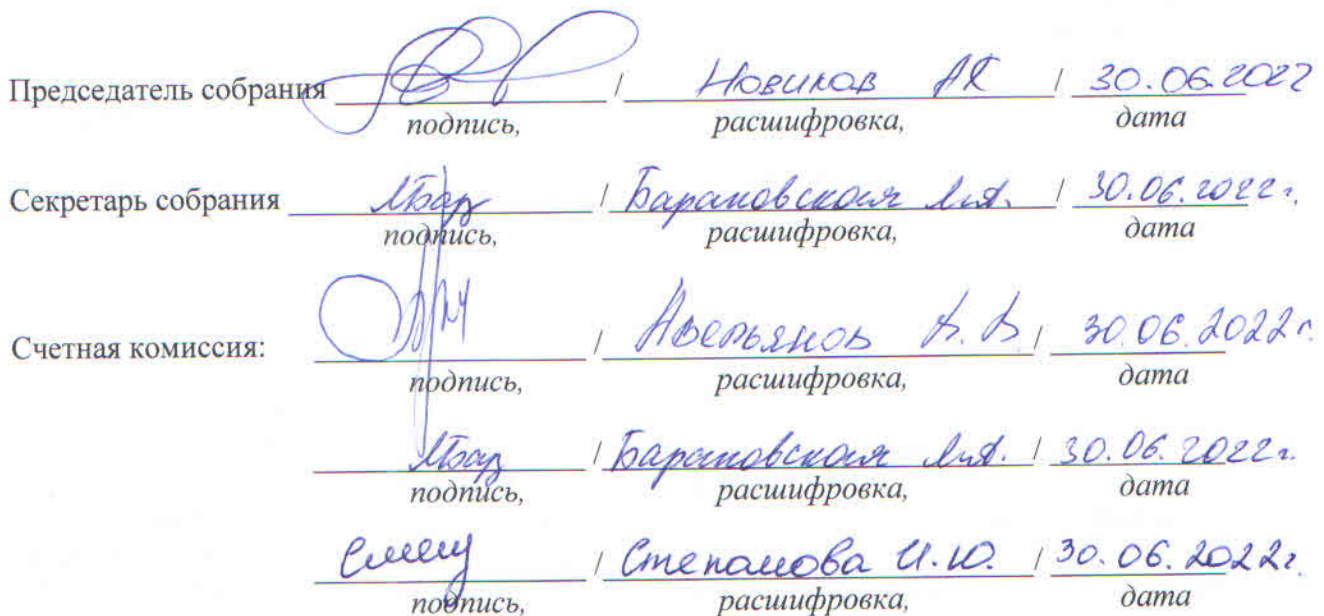 Председатель собрания / Новиков АП / 30.06.2022
подпись, расшифровка, дата
Секретарь собрания / Барановская / 30.06.2022г.
подпись, расшифровка, дата
Счетная комиссия: / Аверьянов А.В. / 30.06.2022г.
подпись, расшифровка, дата
/ Барановская / 30.06.2022г.
подпись, расшифровка, дата
/ Степанова И.Ю. / 30.06.2022г.
подпись, расшифровка, дата